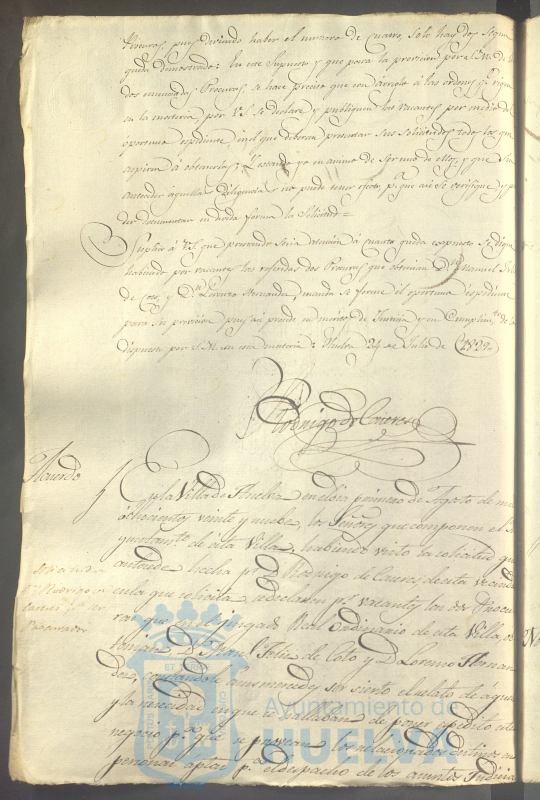 Procuras, pues deviendo haber el numero de cuatro, solo hay dos segun
queda demostrado: En este Supuesto y que para la provision por S.M. de las
dos enunciadas Procuras, se hace preciso que con arreglo á las ordenes que rigen
en la materia, por V.S. se declare y publiquen las vacantes por medio del
oportuno espediente, en el que deberan presentar sus solicitudes todos los que
aspiren á obtenerlas; y estando yo en animo de ser uno de ellos, y que sin
anteceder aquella diligencia no puede tener efecto, pa. que asi se verifique y po
der documentar en devida forma la Solicitud=
Suplico á V.S. que prestando seria atencion á cuanto queda espuesto se digne
habiendo por vacantes las referidas dos Procuras que obtenian Dn. Manuel Feliz
de Coto, y Dn. Lorenzo Hernandez, mandar se forme el oportuno espediente
para su provision pues asi procede en meritos de Justicia y en Cumplimto. de lo
dispuesto por S.M. en esta materia: Huelva 24 de Julio de 1829.
Rodrigo de Caceres
Acuerdo
En la Villa de Huelva en el dia primero de Agosto de mil
ochocientos veinte y nuebe, los Señores que componen el A
yuntamto. de esta Villa, habiendo visto la solicitud que
antecede hecha pr. Dn. Rodrigo de Caceres de esta vecindad
en la que solicita se declaren pr. vacantes las dos Procu
ras que en el Juzgado Real Ordinario de esta Villa, ob
tenian Dn. Manl. Feliz de Coto y Dn. Lorenzo Hernan
dez, constandole a sus mercedes ser cierto el relato de aquel
y la necesidad en que se hallaban de poner espedito este
negocio pa. que se provean los relacionados destinos en
personas aptas pa. el despacho de los asuntos Judicia
Dn. Rodrigo de
Caceres
Procurador
Ayuntamiento de
HUELVA